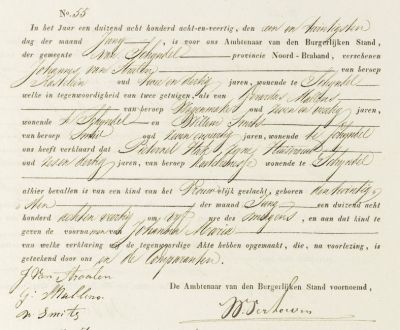 No. 55
In het Jaar een duizend acht honderd acht-en-veertig, den een en twintigsten
dag der maand Juny is voor ons Ambtenaar van den Burgerlijken Stand,
der gemeente Schyndel provincie Noord-Braband, verschenen
Johannes van van beroep
oud twee en dertig jaren, wonende te Schyndel
welke in tegenwoordigheid van twee getuigen, als van
van beroep Wagenmaker oud en veertig jaren,
wonende te Schyndel en Willem Smits
van beroep Smid oud jaren, wonende te Schyndel
ons heeft verklaard dat Pieternel zyne Huisvrouw
oud dertig jaren, van beroep wonende te Schyndel
alhier bevallen is van een kind van het Vrouwelijk geslacht, geboren den twintigs
ten der maand Juny een duizend acht
honderd achten veertig om vyf ure des morgens, en aan dat kind te
geven de voornamen van Johanna Maria
van welke verklaring wij de tegenwoordige Akte hebben opgemaakt, die, na voorlezing, is
geteekend door ons en de Comparanten.
De Ambtenaar van den Burgerlijken Stand voornoemd,
J Van
W Smits